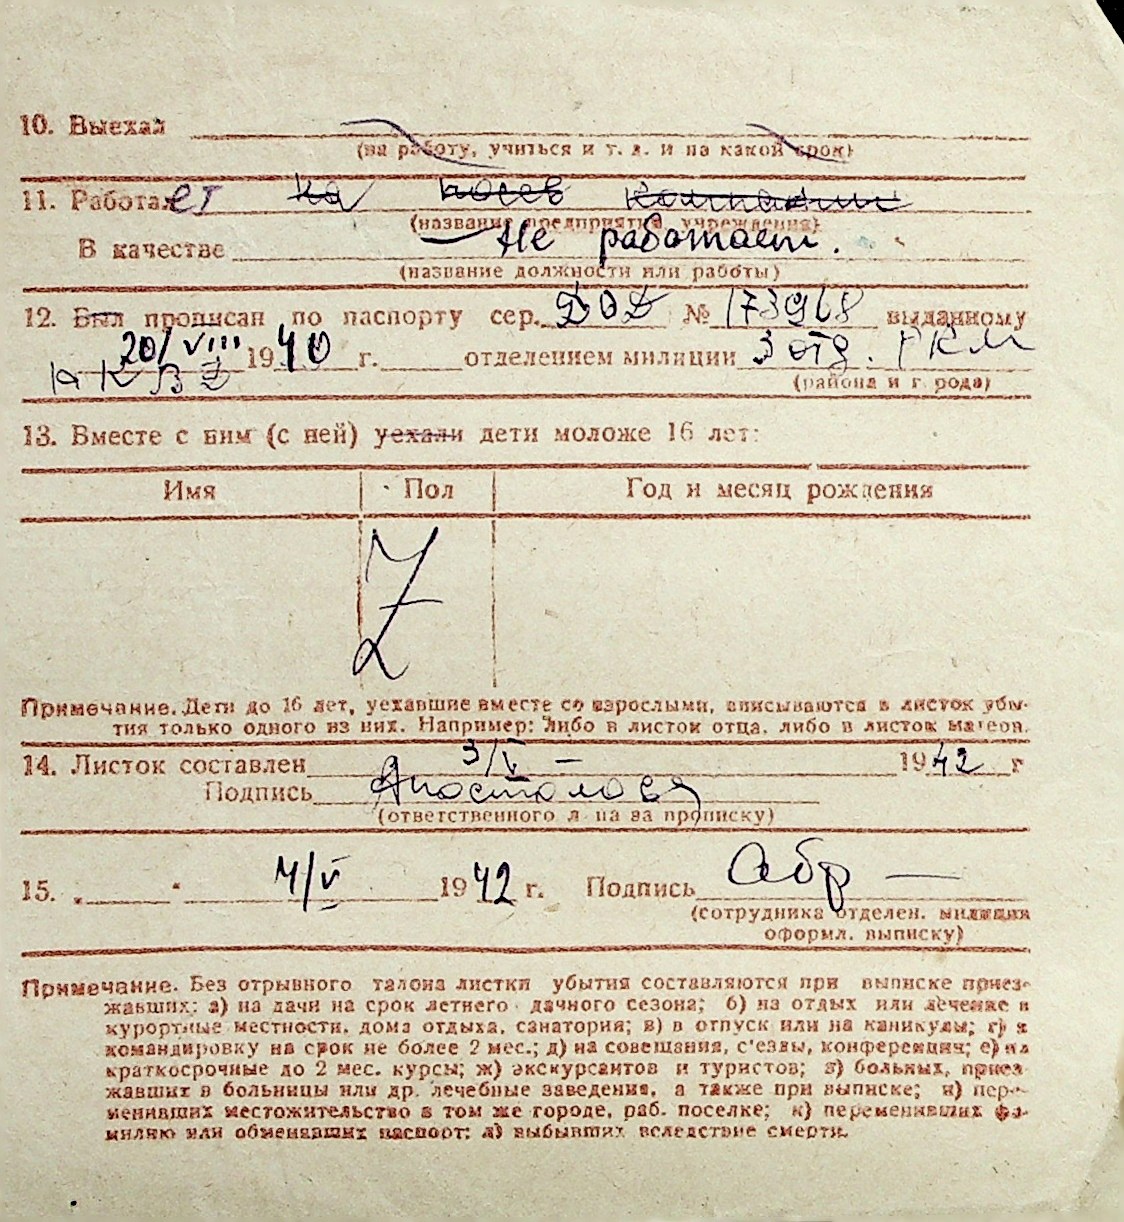 10. Выехал
(на работу, учиться и т. д. и на какой срок)
11. Работает на посев кампании
(название предприятия, учреждения)
В качестве — Не работает.
(название должности или работы)
12. Был прописан по паспорту сер. № 173968 выданному
20/VIII 1940 г. отделением милиции 3 отд. РКМ
НКВД
(района и города)
13. Вместе с ним (с ней) уехали дети моложе 16 лет:
Имя Пол Год и месяц рождения
Z
Примечание. Дети до 16 лет, уехавшие вместе со взрослыми, вписываются в листок убы-
тия только одного из них. Например: либо в листок отца, либо в листок матери.
14. Листок составлен 3/V — 1942 г
Подпись Апостолова
(ответственного лица за прописку)
15. 4/V 1942 г. Подпись Абр —
(сотрудника отделен. милиции
оформл. выписку)
Примечание. Без отрывного талона листки убытия составляются при выписке приез-
жавших: а) на дачи на срок летнего дачного сезона; б) на отдых или лечение в
курортные местности, дома отдыха, санатория; в) в отпуск или на каникулы; г) в
командировку на срок не более 2 мес.; д) на совещания, с'езды, конференции; е) на
краткосрочные до 2 мес. курсы; ж) экскурсантов и туристов; з) больных, приез-
жавших в больницы или др. лечебные заведения, а также при выписке; и) пере-
менивших местожительство в том же городе, раб. поселке; к) переменивших фа-
милию или обменявших паспорт; л) выбывших вследствие смерти.